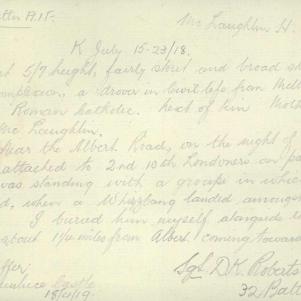 Mc Laughlin H.
K July 15-23/18.
5/7 height, fairly stout and broad sh
complexion, a drover in Civil life from Melb
Roman Catholic. Next of kin Moth
Mc Laughlin.
Near the Albert Road, on the night of
attached to 2nd 10th Londoners on pa
was standing with a groups in which
d, when a Whizzbang landed amongs
I buried him myself alongside
about 1¼ miles from Albert coming toward
Sgt D.K. Roberts
32 Batt